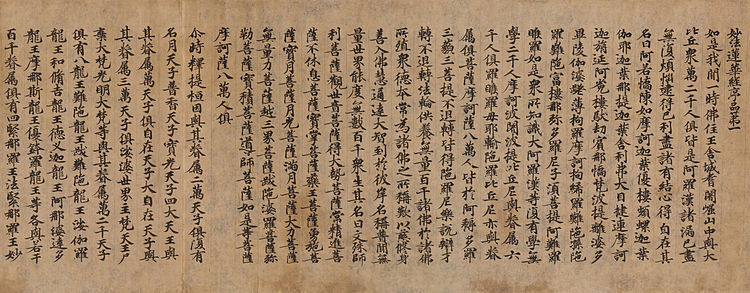 妙法蓮華經序品第一
如是我聞一時佛住王舍城耆闍崛山中與大
比丘衆萬二千人俱皆是阿羅漢諸漏已盡
無復煩惱逮得己利盡諸有結心得自在其
名曰阿若憍陳如摩訶迦葉優樓頻螺迦葉
伽耶迦葉那提迦葉舍利弗大目揵連摩訶
迦旃延阿㝹樓馱劫賓那憍梵波提離婆多
畢陵伽婆蹉薄拘羅摩訶拘絺羅難陀孫陀
羅難陀富樓那彌多羅尼子須菩提阿難羅
睺羅如是衆所知識大阿羅漢等復有學無
學二千人摩訶波闍波提比丘尼與眷屬六
千人俱羅睺羅母耶輸陀羅比丘尼亦與眷
屬俱菩薩摩訶薩八萬人皆於阿耨多羅
三藐三菩提不退轉皆得陀羅尼樂說辯才
轉不退轉法輪供養無量百千諸佛於諸佛
所殖衆德本常為諸佛之所稱歎以慈修身
善入佛慧通達大智到於彼岸名稱普聞無
量世界能度無數百千衆生其名曰文殊師
利菩薩觀世音菩薩得大勢菩薩常精進菩
薩不休息菩薩寶掌菩薩藥王菩薩勇施菩
薩寶月菩薩月光菩薩滿月菩薩大力菩薩
無量力菩薩越三界菩薩跋陀婆羅菩薩彌
勒菩薩寶積菩薩導師菩薩如是等菩薩
摩訶薩八萬人俱
尒時釋提桓因與其眷屬二萬天子俱復有
名月天子普香天子寶光天子四大天王與
其眷屬萬天子俱自在天子大自在天子與
其眷屬三萬天子俱娑婆世界主梵天王尸
棄大梵光明大梵等與其眷屬萬二千天子
俱有八龍王難陀龍王跋難陀龍王娑伽羅
龍王和脩吉龍王德叉迦龍王阿那婆達多
龍王摩那斯龍王優鉢羅龍王等各與若干
百千眷屬俱有四緊那羅王法緊那羅王妙